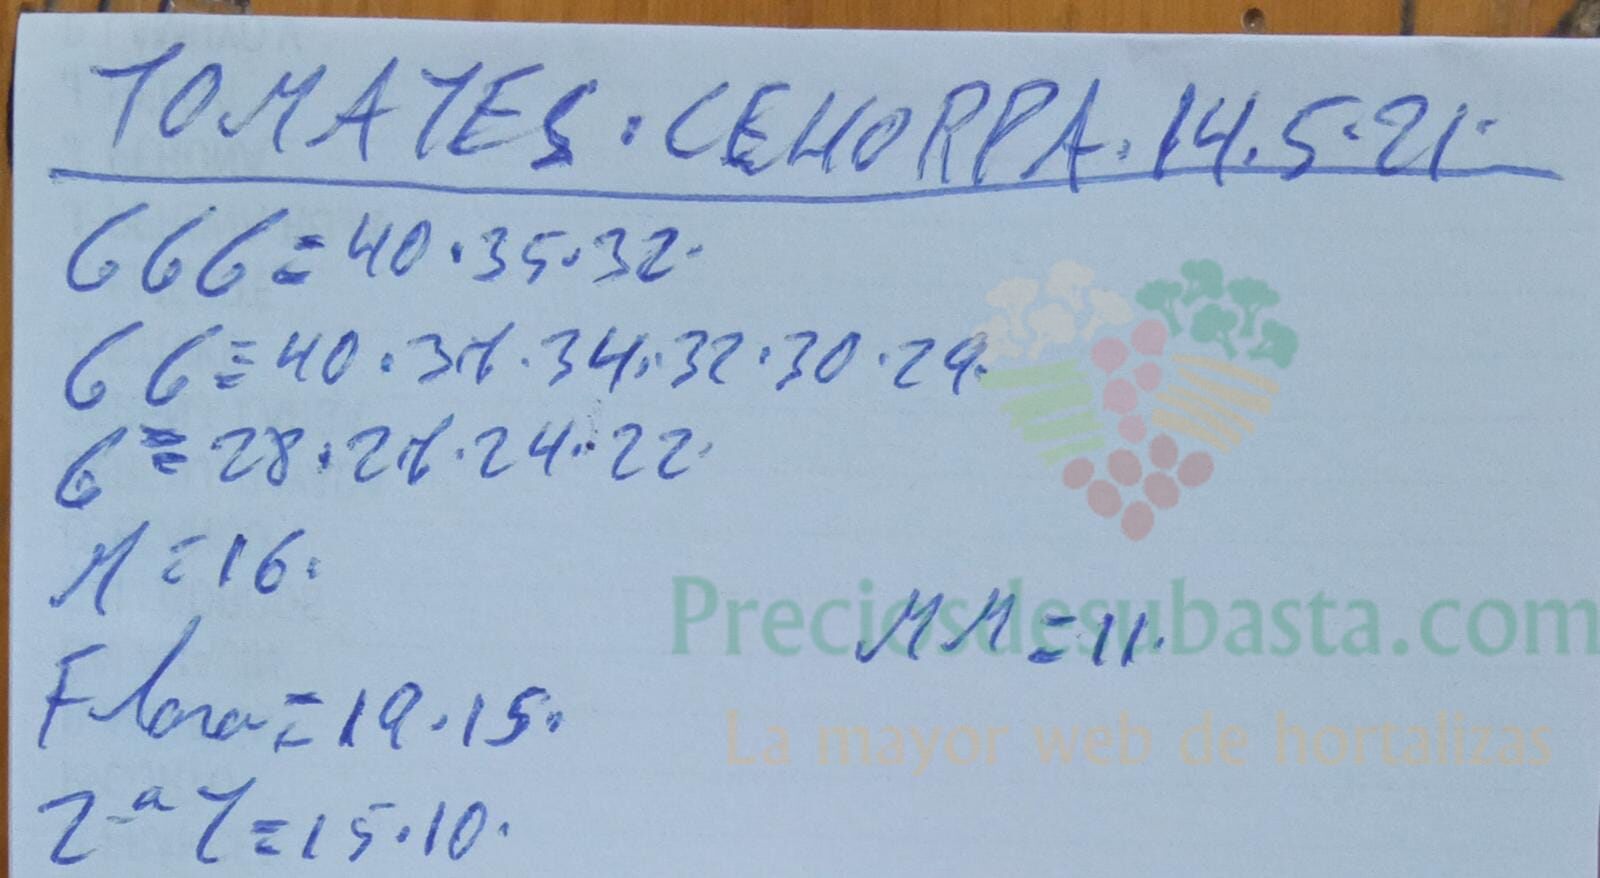 TOMATES·CEHORPA·14·5·21·
GGG=40·35·32·
GG=40·37·34·32·30·29·
G=28·27·24·22·
M=16·
MM=11·
Flora=19·15·
2ªT=15·10·
Preciosdesubasta.com
La mayor web de hortalizas